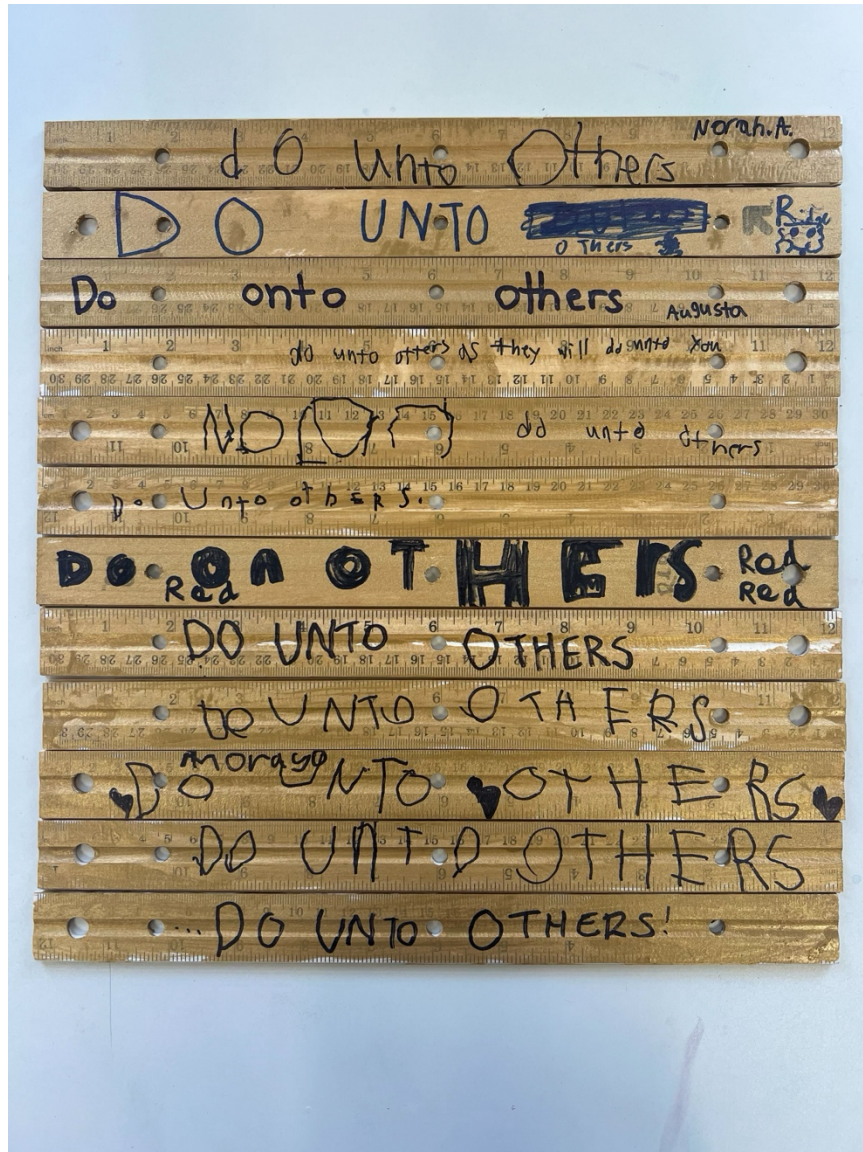 Norah.A.
dO unto Others
DO UNTO
OTHers
Ridge
Do onto others
Augusta
do unto otters as they will do unto You
do unto others
Do Unto othERS.
DO ON OTHERS
Red
Red
Red
DO UNTO OTHERS
De UNTO OTHERS
morago
DO UNTO OTHERS
DO UNTO OTHERS
...DO UNTO OTHERS!